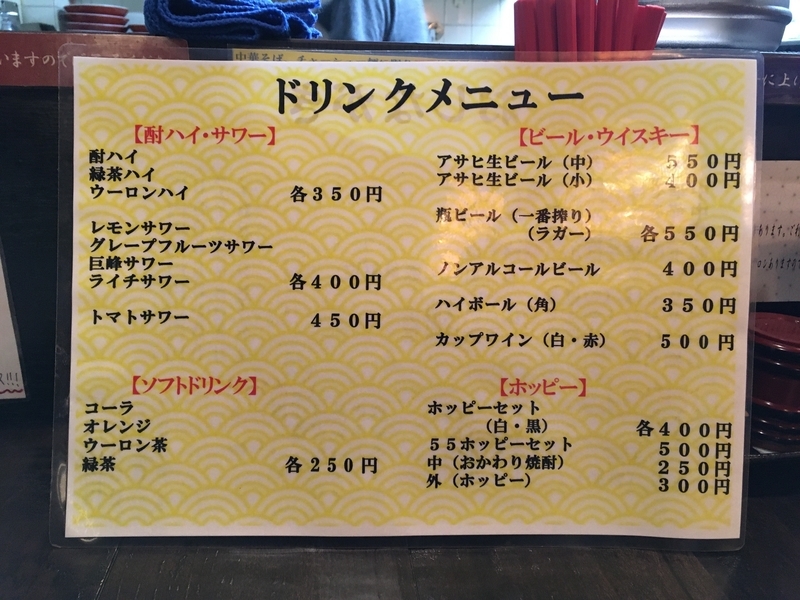 いますので
中華そば
ドリンクメニュー
【酎ハイ・サワー】
酎ハイ
緑茶ハイ
ウーロンハイ 各350円
レモンサワー
グレープフルーツサワー
巨峰サワー
ライチサワー 各400円
トマトサワー 450円
【ソフトドリンク】
コーラ
オレンジ
ウーロン茶
緑茶 各250円
【ビール・ウイスキー】
アサヒ生ビール（中） 550円
アサヒ生ビール（小） 400円
瓶ビール（一番搾り）
（ラガー） 各550円
ノンアルコールビール 400円
ハイボール（角） 350円
カップワイン（白・赤） 500円
【ホッピー】
ホッピーセット
（白・黒） 各400円
55ホッピーセット 500円
中（おかわり焼酎） 250円
外（ホッピー） 300円